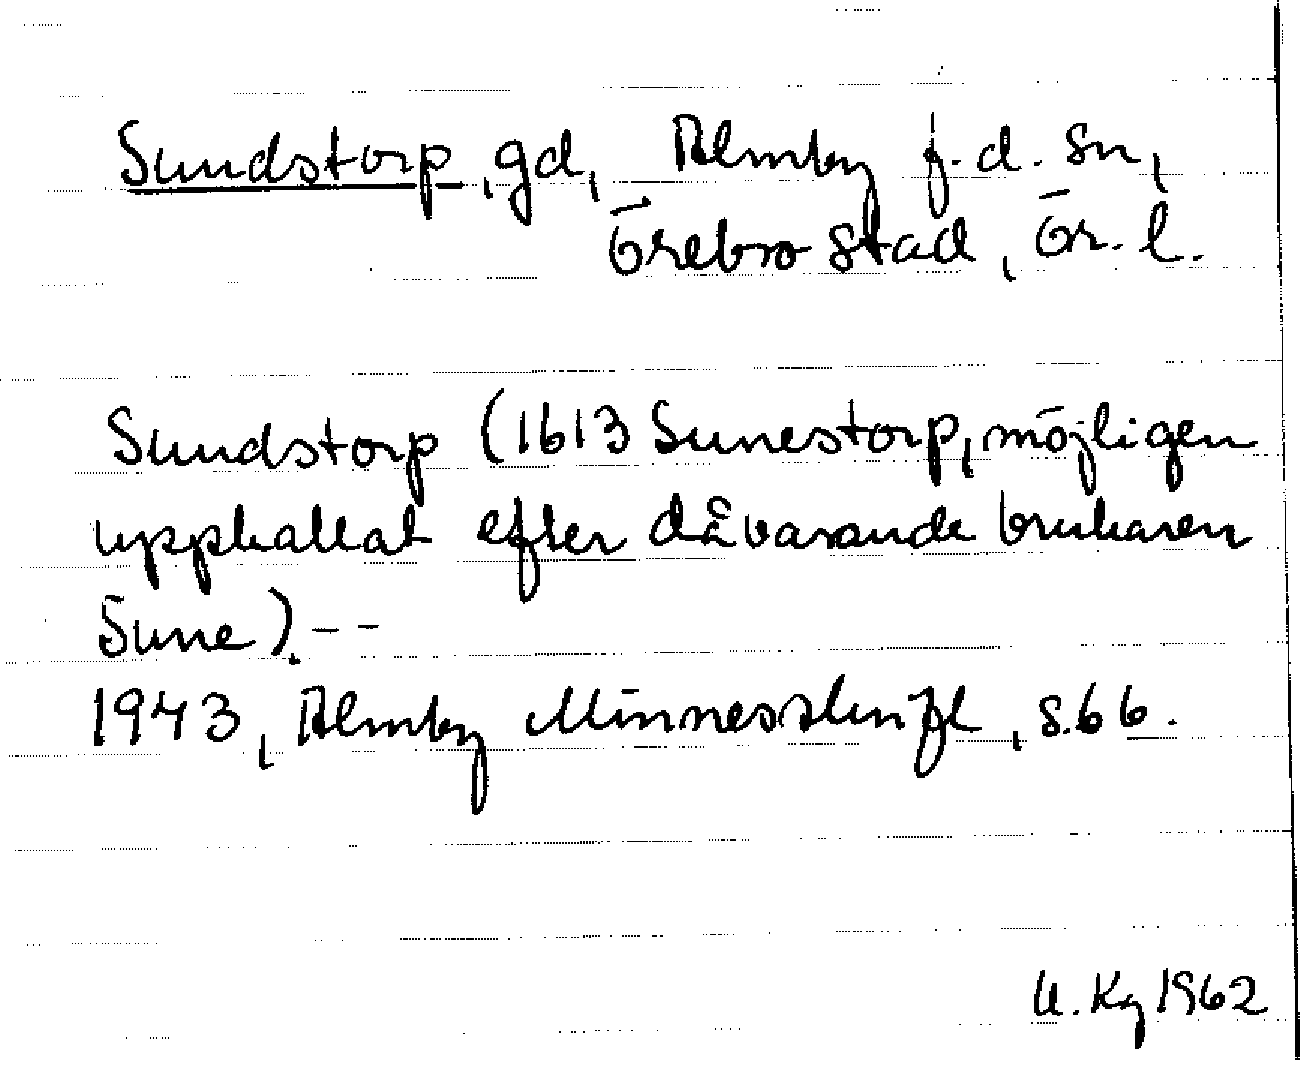 Sundstorp, gd, Almby f.d. sn,
Örebro stad, Ör. l.
Sundstorp (1613 Sunestorp, möjligen
uppkallat efter dåvarande brukaren
Sune).--
1943, Almby Minnesskrift, s.66.
U. Kg 1962